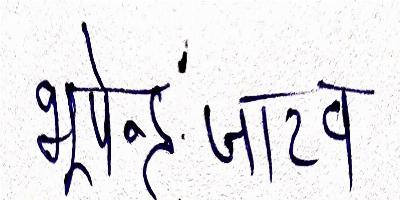 भूपेन्द्र जाटव